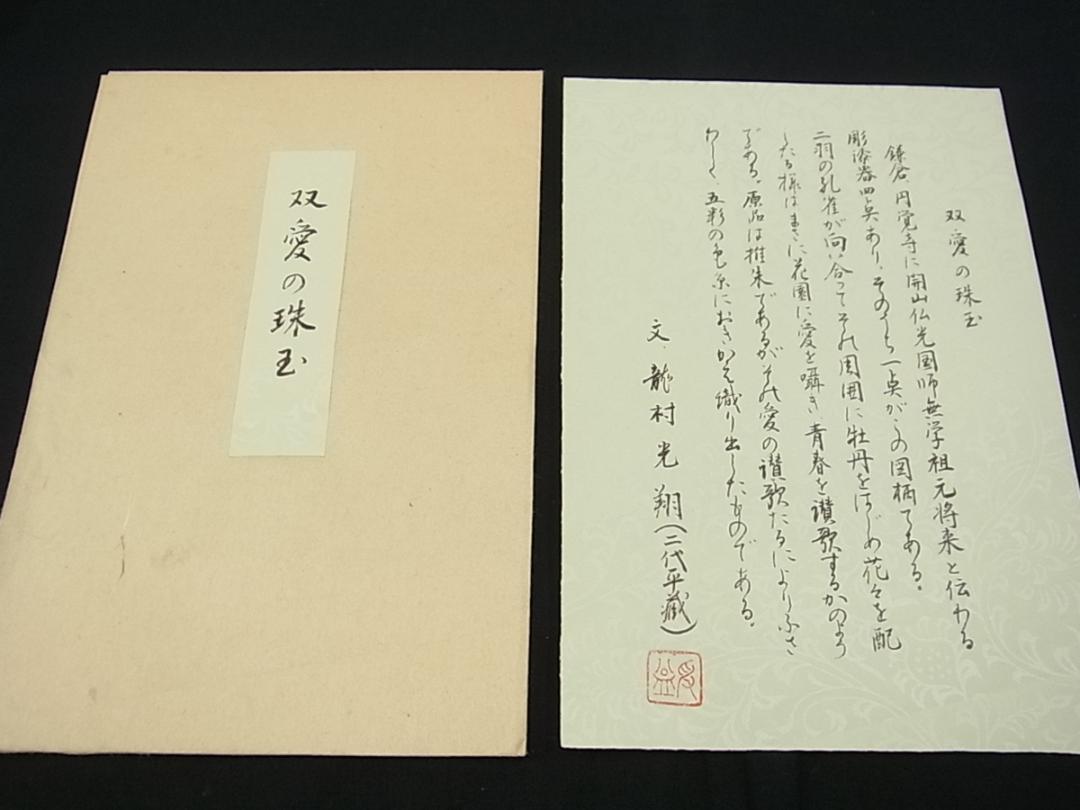 双愛の珠玉
双愛の珠玉
鎌倉 円覚寺に開山仏光国師無学祖元将来と伝わる
彫漆器四点あり、そのうち一点がこの図柄である。
二羽の孔雀が向い合ってその周囲に牡丹をはじめ花々を配
したる様はまさに花園に愛を囁き、青春を讃歌するかのよう
である。原品は堆朱であるがその愛の讃歌たるによりふさ
わしく、五彩の色糸におきかえ織り出したものである。
文 龍村光翔(二代平藏)